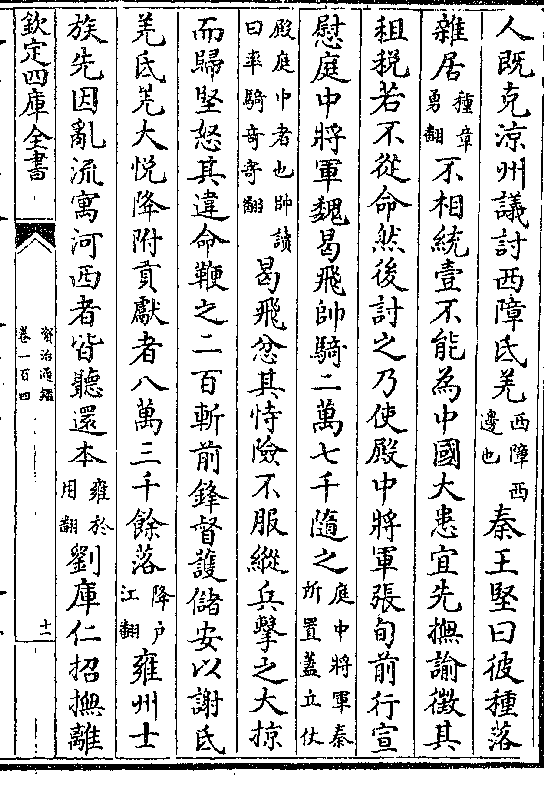 人既克涼州議討西障氐羌西障西邊也秦王堅曰彼種落
雜居種章勇翻不相統壹不能為中國大患宜先撫諭徵其
租税若不從命然後討之乃使殿中將軍張旬前行宣
慰庭中將軍魏曷飛帥騎二萬七千隨之庭中將軍秦所置蓋立仗
殿庭中者也帥讀曰率騎奇寄翻曷飛忿其恃險不服縱兵擊之大掠
而歸堅怒其違命鞭之二百斬前鋒督護儲安以謝氐
羌氐羌大悦降附貢獻者八萬三千餘落降户江翻雍州士
族先因亂流寓河西者皆聽還本雍於用翻劉庫仁招撫離
欽定四庫全書
資治通鑑
卷一百四
十二